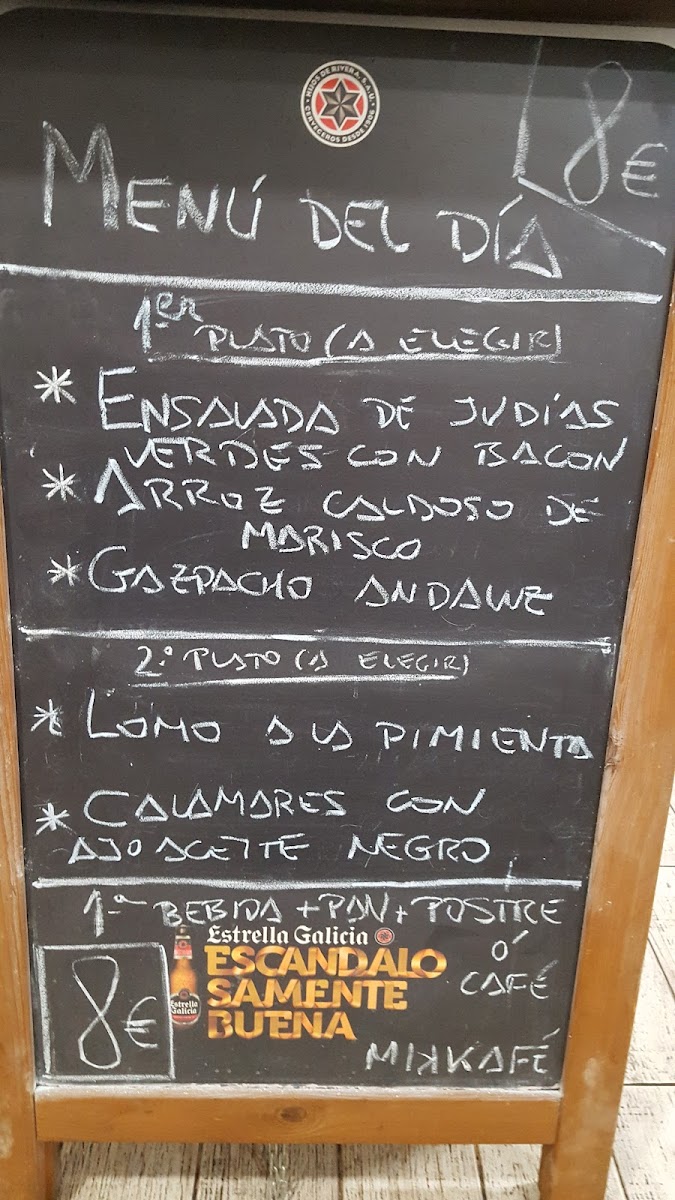 HIJOS DE RIVERA, S.A.U.
CERVECEROS DESDE 1906
8€
MENÚ DEL DÍA
1er PLATO (A ELEGIR)
* ENSALADA DE JUDÍAS
VERDES CON BACON
* ARROZ CALDOSO DE
MARISCO
* GAZPACHO ANDALUZ
2º PLATO (A ELEGIR)
* LOMO A LA PIMIENTA
* CALAMARES CON
AJOACEITE NEGRO
1ª BEBIDA + PAN + POSTRE
Ó
CAFÉ
Estrella Galicia
ESCANDALO
SAMENTE
BUENA
Estrella
Galicia
8€
MIKKAFÉ